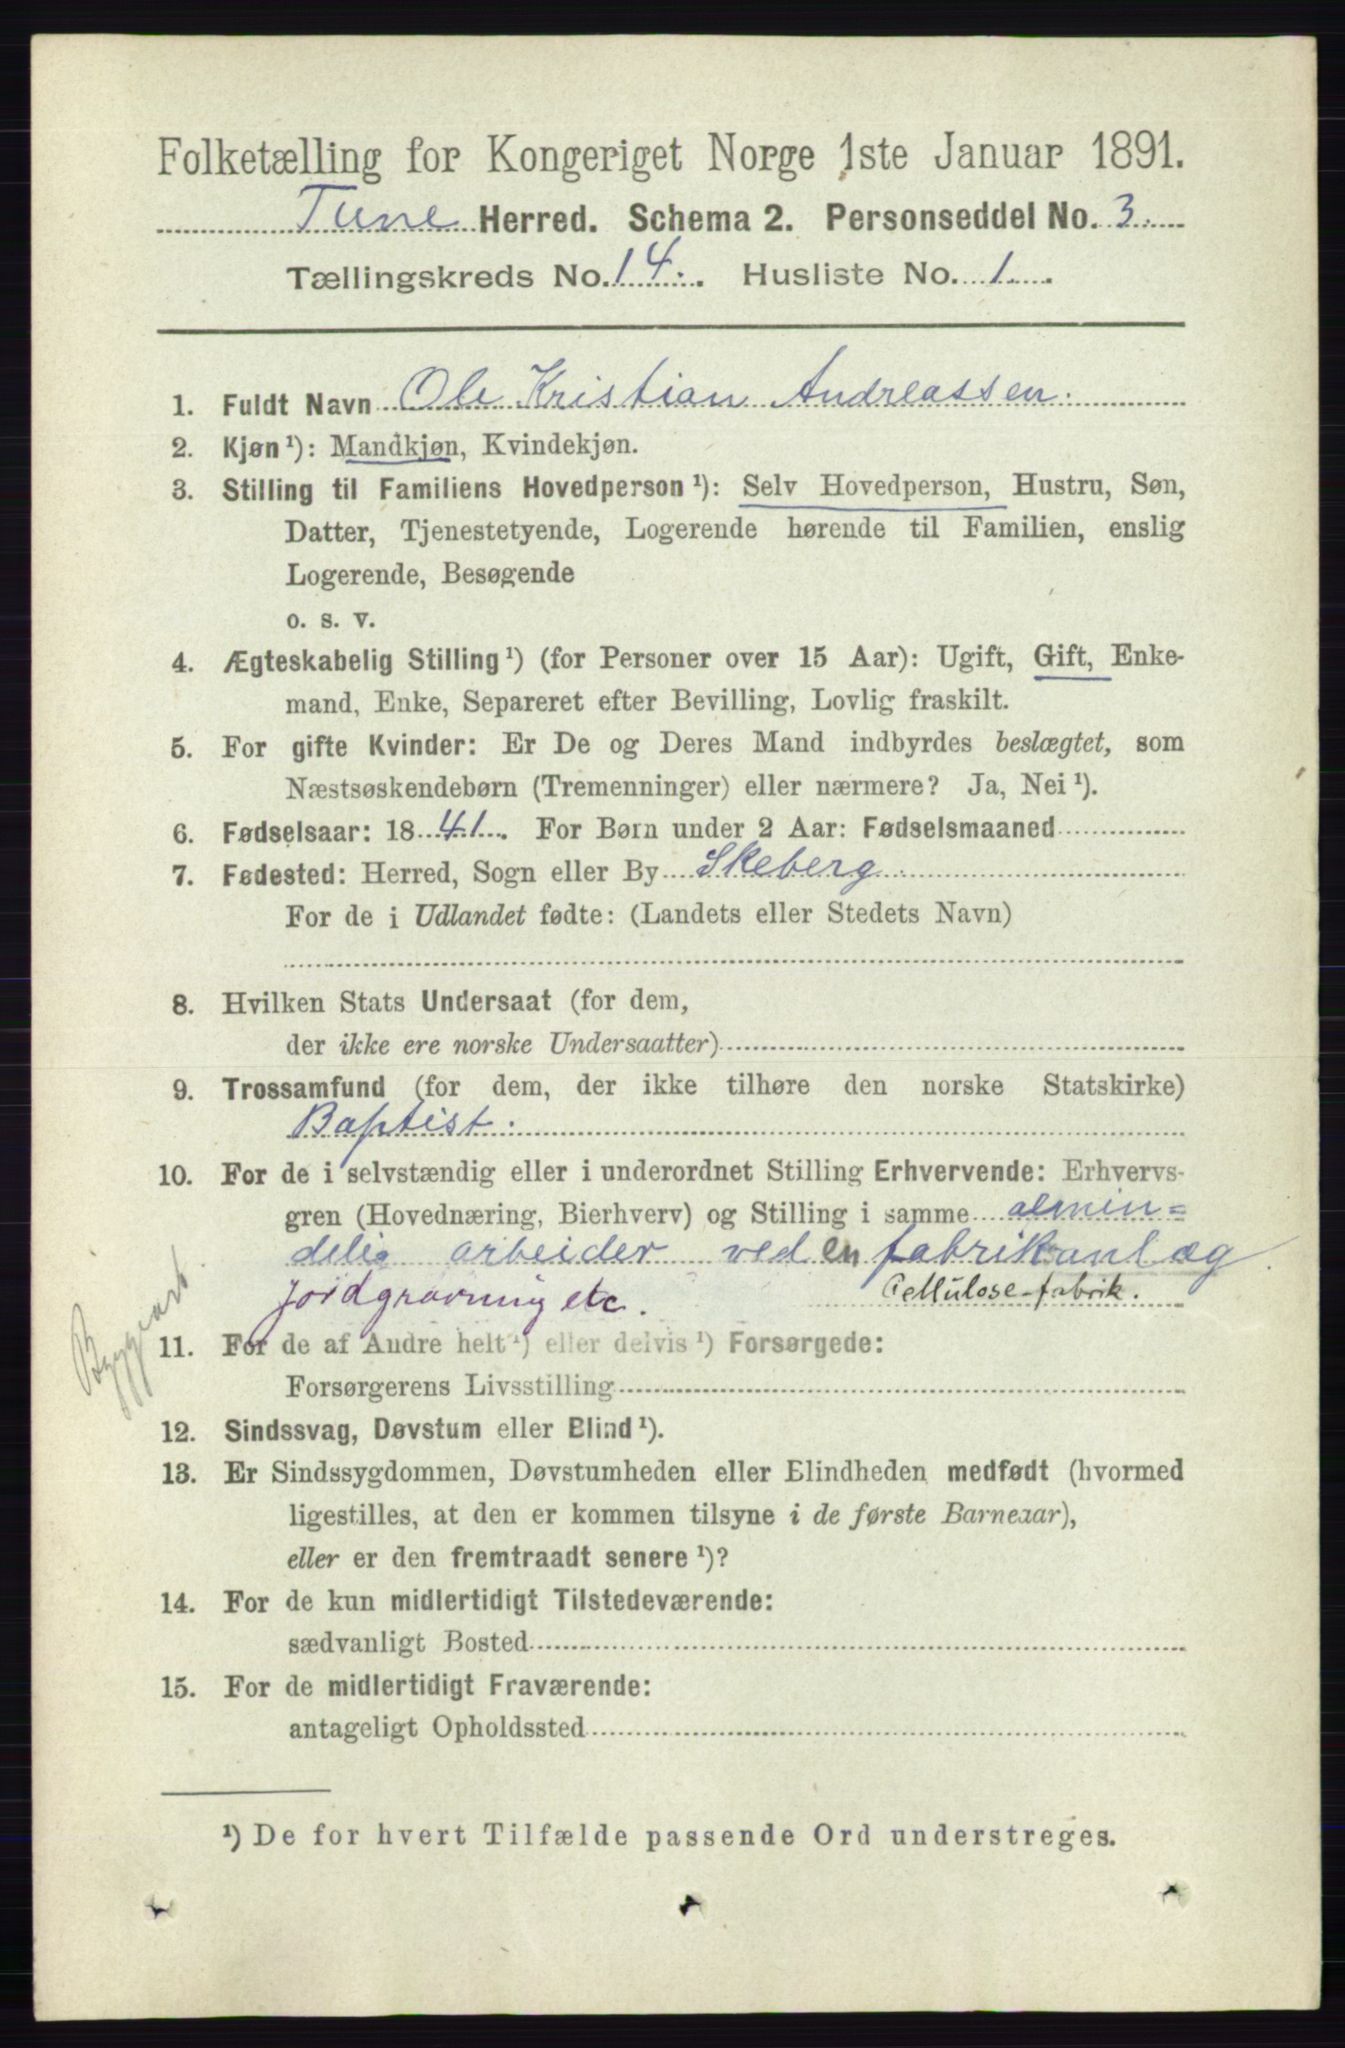 Folketælling for Kongeriget Norge 1ste Januar 1891.
Tune Herred. Schema 2. Personseddel No. 3.
Tællingskreds No. 14. Husliste No. 1.
1. Fuldt Navn Ole Kristian Andreassen.
2. Kjøn ¹): Mandkjøn, Kvindekjøn.
3. Stilling til Familiens Hovedperson ¹): Selv Hovedperson, Hustru, Søn,
Datter, Tjenestetyende, Logerende hørende til Familien, enslig
Logerende, Besøgende
o. s. v.
4. Ægteskabelig Stilling ¹) (for Personer over 15 Aar): Ugift, Gift, Enke-
mand, Enke, Separeret efter Bevilling, Lovlig fraskilt.
5. For gifte Kvinder: Er De og Deres Mand indbyrdes beslægtet, som
Næstsøskendebørn (Tremenninger) eller nærmere? Ja, Nei ¹).
6. Fødselsaar: 1841. For Børn under 2 Aar: Fødselsmaaned
7. Fødested: Herred, Sogn eller By Skeberg
For de i Udlandet fødte: (Landets eller Stedets Navn)
8. Hvilken Stats Undersaat (for dem,
der ikke ere norske Undersaatter)
9. Trossamfund (for dem, der ikke tilhøre den norske Statskirke)
Baptist.
10. For de i selvstændig eller i underordnet Stilling Erhvervende: Erhvervs-
gren (Hovednæring, Bierhverv) og Stilling i samme almin=
delig arbeider ved en fabrikanlæg
jordgravning etc. Cellulose-fabrik.
Byggearb.
11. For de af Andre helt ¹) eller delvis ¹) Forsørgede:
Forsørgerens Livsstilling
12. Sindssvag, Døvstum eller Blind ¹).
13. Er Sindssygdommen, Døvstumheden eller Blindheden medfødt (hvormed
ligestilles, at den er kommen tilsyne i de første Barneaar),
eller er den fremtraadt senere ¹)?
14. For de kun midlertidigt Tilstedeværende:
sædvanligt Bosted
15. For de midlertidigt Fraværende:
antageligt Opholdssted
¹) De for hvert Tilfælde passende Ord understreges.